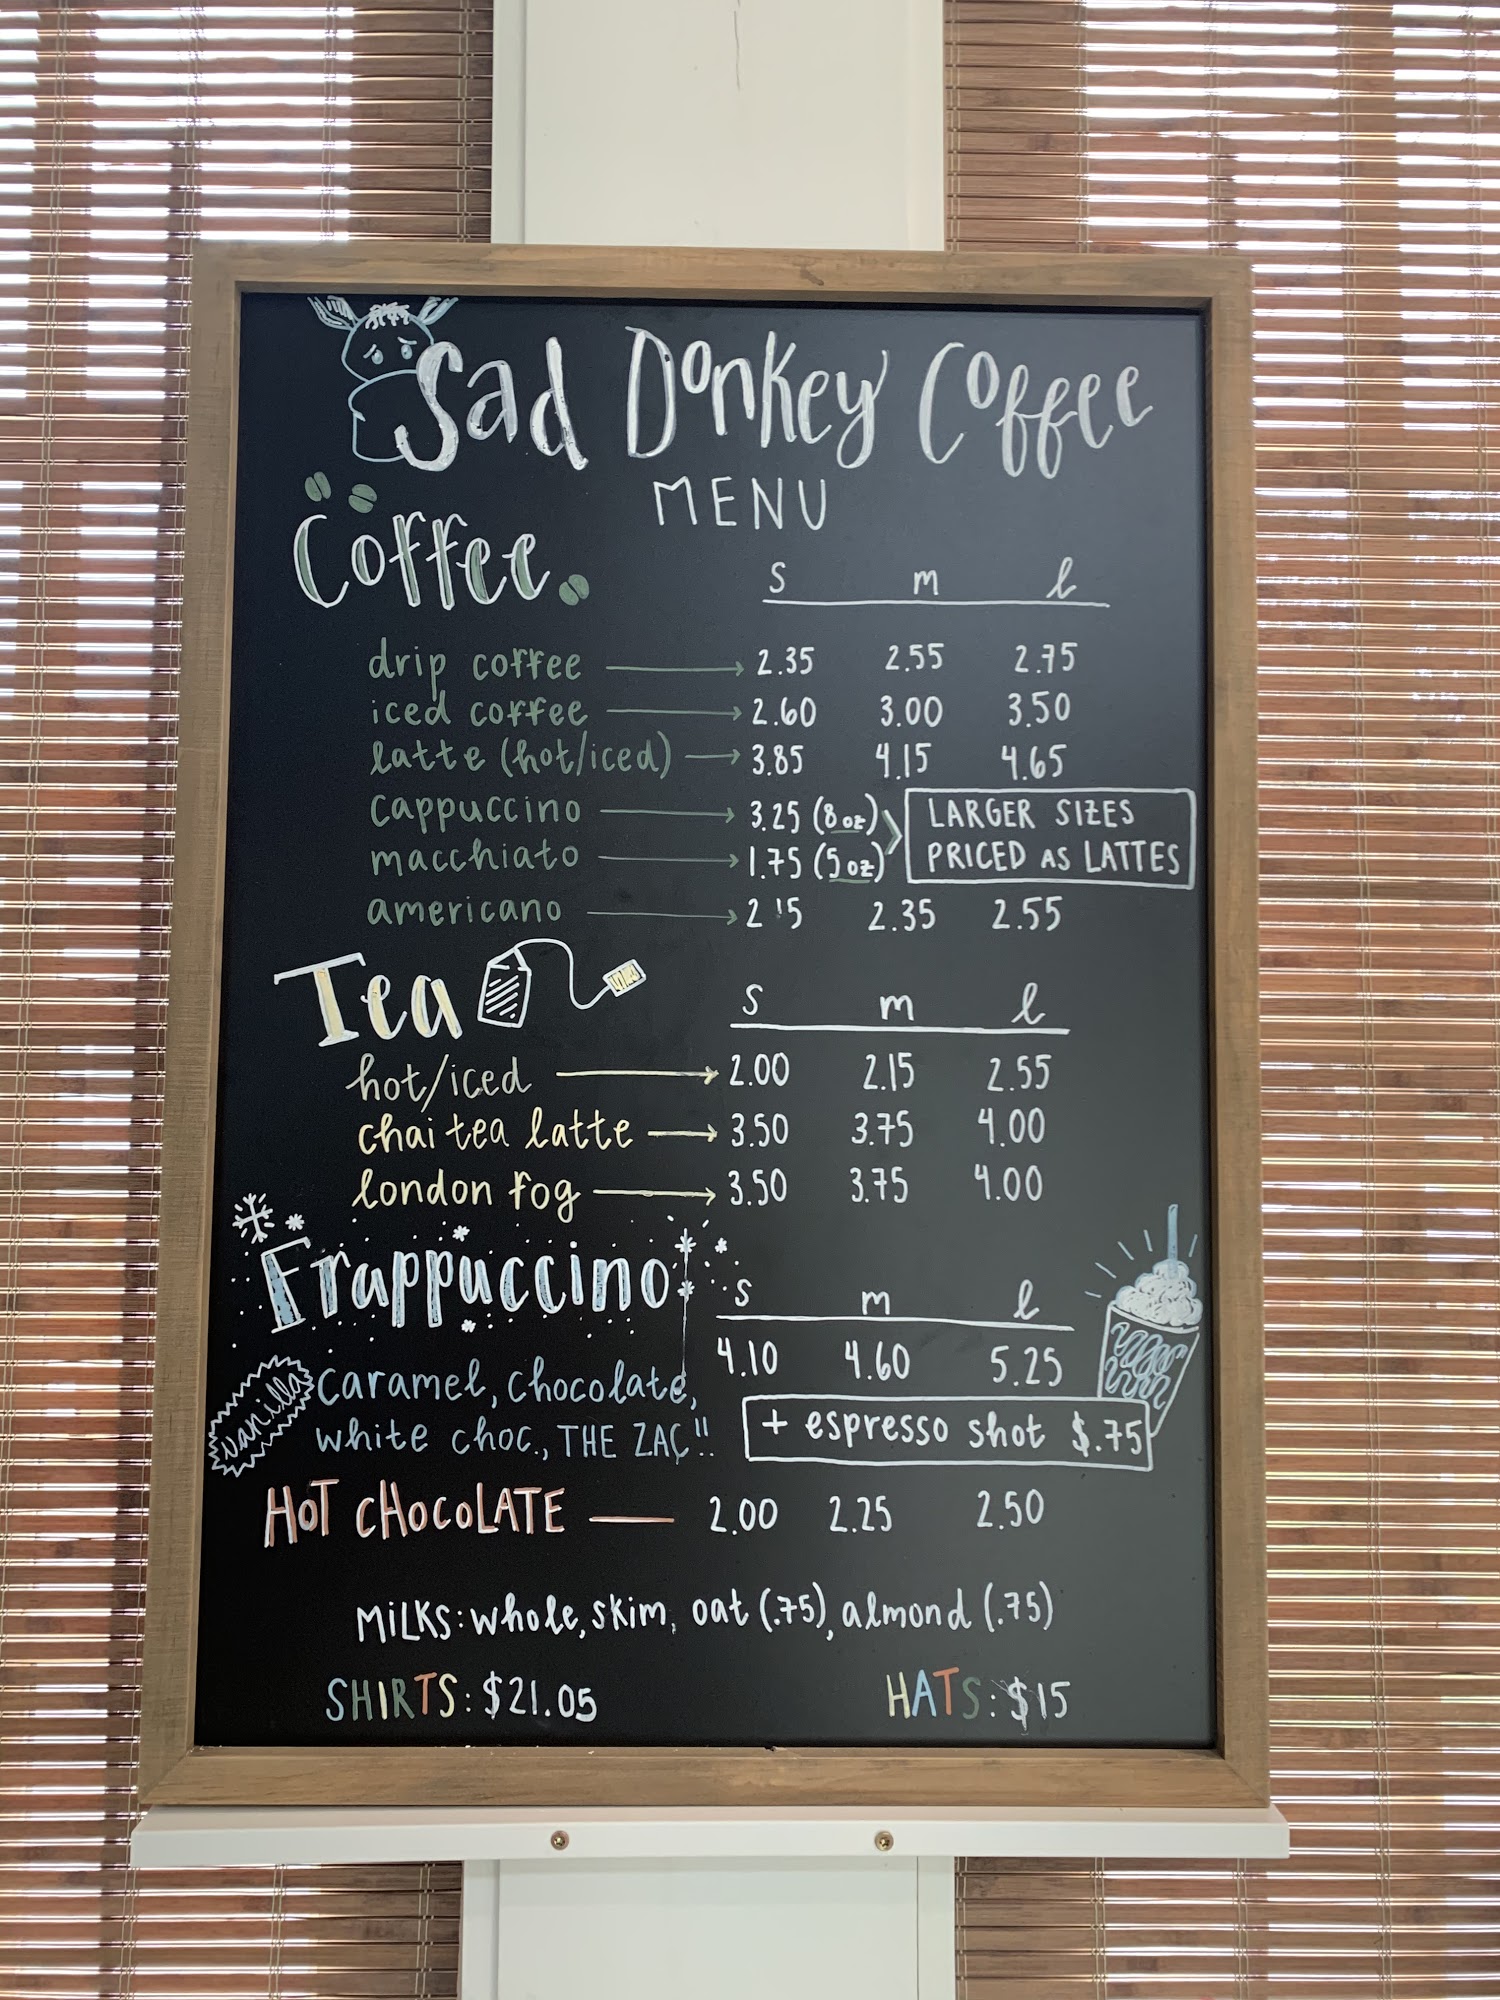 Sad Donkey Coffee
MENU
Coffee
s m l
drip coffee 2.35 2.55 2.75
iced coffee 2.60 3.00 3.50
latte (hot/iced) 3.85 4.15 4.65
cappuccino 3.25 (8 oz)
macchiato 1.75 (5 oz)
LARGER SIZES
PRICED AS LATTES
americano 2.15 2.35 2.55
Tea
s m l
hot/iced 2.00 2.15 2.55
chai tea latte 3.50 3.75 4.00
london fog 3.50 3.75 4.00
Frappuccino
s m l
4.10 4.60 5.25
vanilla
caramel, chocolate,
white choc., THE ZAC!!
+ espresso shot $.75
HOT CHOCOLATE — 2.00 2.25 2.50
MILKS: whole, skim, oat (.75), almond (.75)
SHIRTS: $21.05 HATS: $15